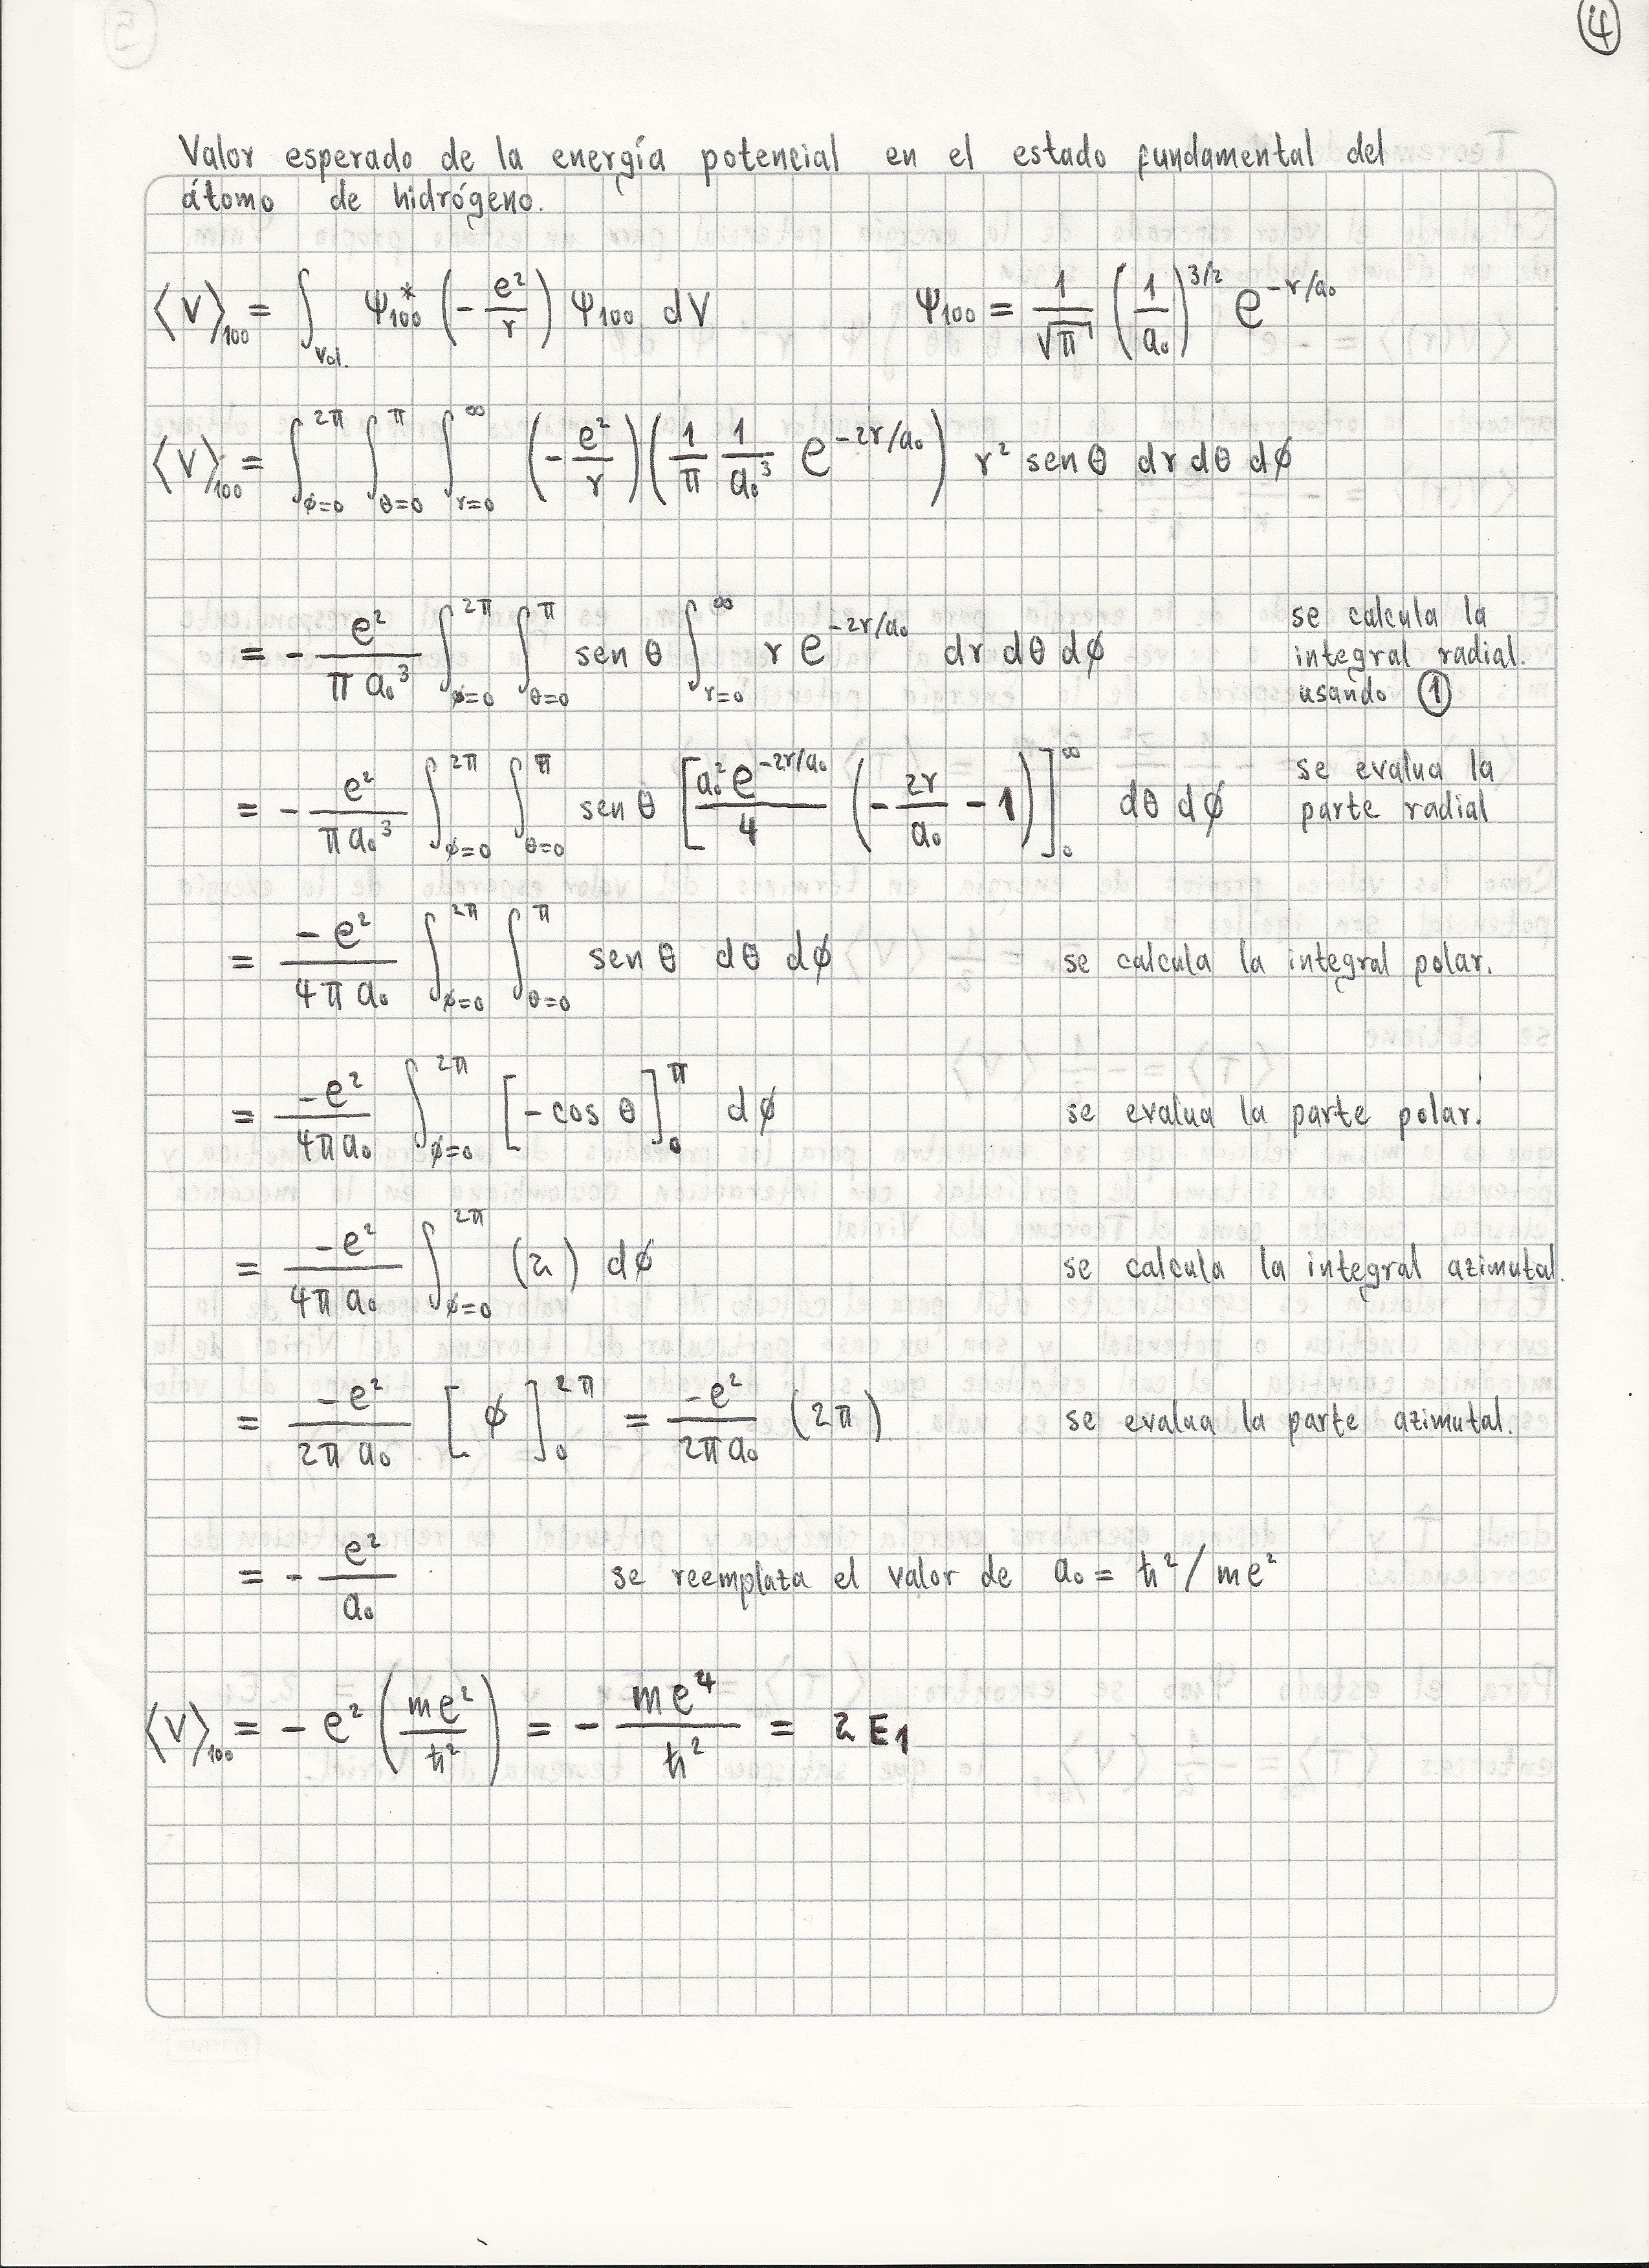 4
Valor esperado de la energía potencial en el estado fundamental del
átomo de hidrógeno.
⟨V⟩₁₀₀ = ∫_Vol. Ψ₁₀₀* (-e²/r) Ψ₁₀₀ dV Ψ₁₀₀ = 1/√π (1/a₀)^3/2 e^-r/a₀
⟨V⟩₁₀₀ = ∫_ϕ=0^2π ∫_θ=0^π ∫_r=0^∞ (-e²/r) (1/π 1/a₀³ e^-2r/a₀) r² sen θ dr dθ dϕ
= - e²/πa₀³ ∫_ϕ=0^2π ∫_θ=0^π sen θ ∫_r=0^∞ r e^-2r/a₀ dr dθ dϕ se calcula la
integral radial.
usando ①
= - e²/πa₀³ ∫_ϕ=0^2π ∫_θ=0^π sen θ [a₀² e^-2r/a₀/4 (-2r/a₀ - 1)]₀^∞ dθ dϕ se evalua la
parte radial
= -e²/4πa₀ ∫_ϕ=0^2π ∫_θ=0^π sen θ dθ dϕ se calcula la integral polar.
= -e²/4πa₀ ∫_ϕ=0^2π [-cos θ]₀^π dϕ se evalua la parte polar.
= -e²/4πa₀ ∫_ϕ=0^2π (2) dϕ se calcula la integral azimutal.
= -e²/2πa₀ [ϕ]₀^2π = -e²/2πa₀ (2π) se evalua la parte azimutal.
= - e²/a₀ se reemplaza el valor de a₀ = ħ²/me²
⟨V⟩₁₀₀ = - e² (me²/ħ²) = - me⁴/ħ² = 2E₁